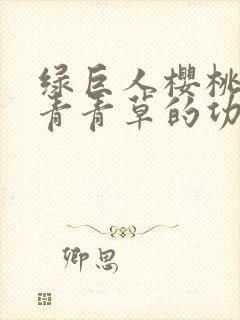 绿巨人樱桃
青青草的功
卿思